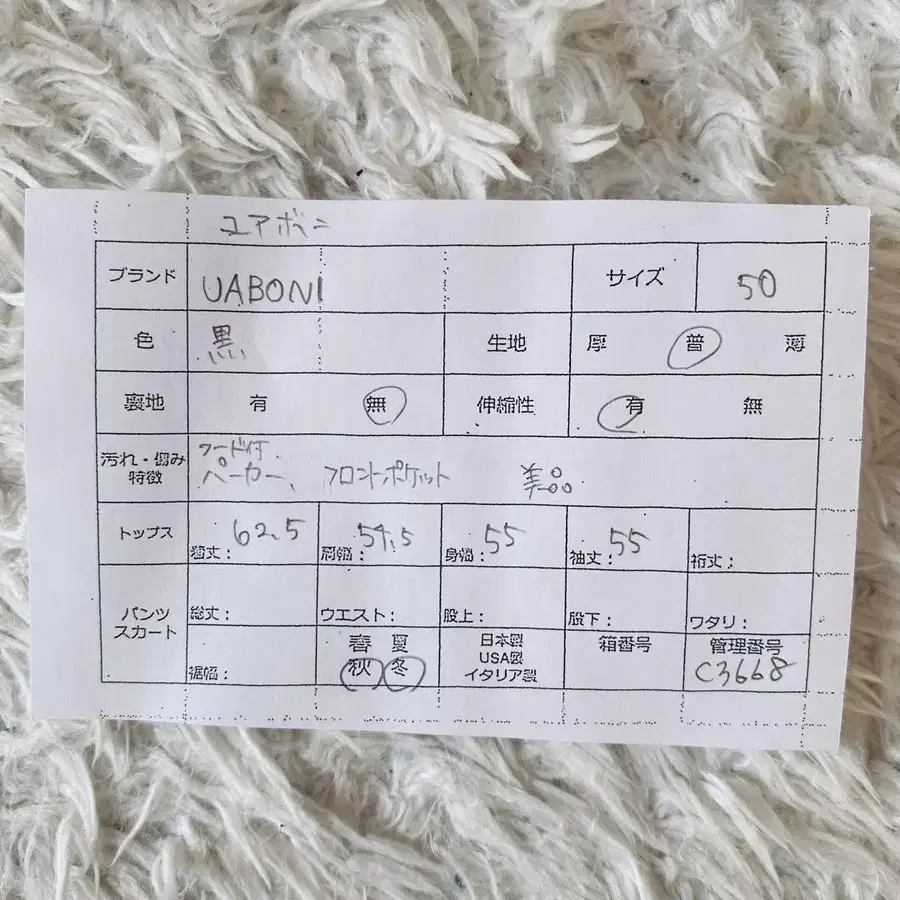 ユアボニ
ブランド UABONI サイズ 50
色 黒 生地 厚 普 薄
裏地 有 無 伸縮性 有 無
汚れ・傷み 特徴 フード付.
パーカー、 フロントポケット 美品
トップス 着丈： 62.5 肩幅： 51.5 身幅： 55 袖丈： 55 裄丈：
パンツ スカート 総丈： ウエスト： 股上： 股下： ワタリ：
裾幅： 春 夏 秋 冬 日本製 USA製 イタリア製 箱番号 管理番号 C3668